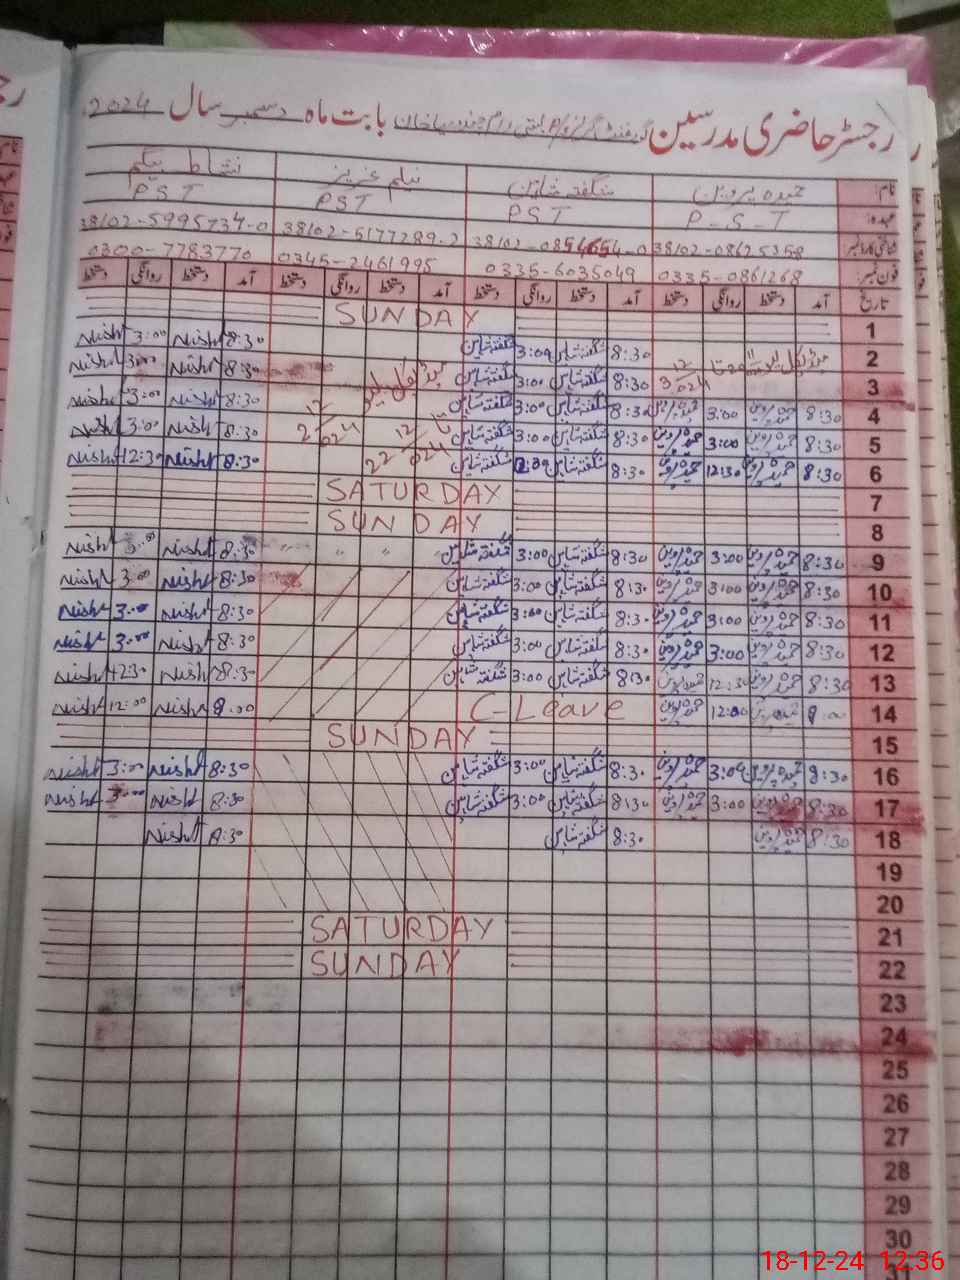 رجسٹر حاضری مدرسین گورنمنٹ گرلز بابت ماہ دسمبر سال 2024
نام: حمیدہ پروین شگفتہ شاہین نیلم عزیز نشاط بیگم
عہدہ: P-S-T PST PST PST
شناختی کارڈ نمبر 38102-08625358 38102-0854654-0 38102-5177289-2 38102-5995734-0
فون نمبر: 0335-0861268 0335-6035049 0345-2461995 0300-7783770
تاریخ آمد دستخط روانگی دستخط آمد دستخط روانگی دستخط آمد دستخط روانگی دستخط آمد دستخط روانگی دستخط
1 SUNDAY
2 8:30 شگفتہ شاہین 3:00 شگفتہ شاہین 8:30 Nisht 3:00 Nisht
3 8:30 شگفتہ شاہین 3:00 شگفتہ شاہین 8:30 Nisht 3:00 Nisht
4 8:30 حمیدہ پروین 3:00 حمیدہ پروین 8:30 شگفتہ شاہین 3:00 شگفتہ شاہین 8:30 Nisht 3:00 Nisht
5 8:30 حمیدہ پروین 3:00 حمیدہ پروین 8:30 شگفتہ شاہین 3:00 شگفتہ شاہین 8:30 Nisht 3:00 Nisht
6 8:30 حمیدہ پروین 12:30 حمیدہ پروین 8:30 شگفتہ شاہین شگفتہ شاہین 8:30 Nisht 12:30 Nisht
7 SATURDAY
8 SUNDAY
9 8:30 حمیدہ پروین 3:00 حمیدہ پروین 8:30 شگفتہ شاہین 3:00 شگفتہ شاہین 8:30 Nisht 3:00 Nisht
10 8:30 حمیدہ پروین 3:00 حمیدہ پروین 8:30 شگفتہ شاہین 3:00 شگفتہ شاہین 8:30 Nisht 3:00 Nisht
11 8:30 حمیدہ پروین 3:00 حمیدہ پروین 8:30 شگفتہ شاہین 3:00 شگفتہ شاہین 8:30 Nisht 3:00 Nisht
12 8:30 حمیدہ پروین 3:00 حمیدہ پروین 8:30 شگفتہ شاہین 3:00 شگفتہ شاہین 8:30 Nisht 3:00 Nisht
13 8:30 حمیدہ پروین 12:30 حمیدہ پروین 8:30 شگفتہ شاہین 3:00 شگفتہ شاہین 8:30 Nisht 12:30 Nisht
14 9:00 حمیدہ پروین 12:00 حمیدہ پروین C-Leave 9:00 Nisht 12:00 Nisht
15 SUNDAY
16 8:30 حمیدہ پروین 3:00 حمیدہ پروین 8:30 شگفتہ شاہین 3:00 شگفتہ شاہین 8:30 Nisht 3:00 Nisht
17 8:30 حمیدہ پروین 3:00 حمیدہ پروین 8:30 شگفتہ شاہین 3:00 شگفتہ شاہین 8:30 Nisht 3:00 Nisht
18 8:30 حمیدہ پروین 8:30 شگفتہ شاہین 8:30 Nisht
19
20
21 SATURDAY
22 SUNDAY
23
24
25
26
27
28
29
30
18-12-24 12:36